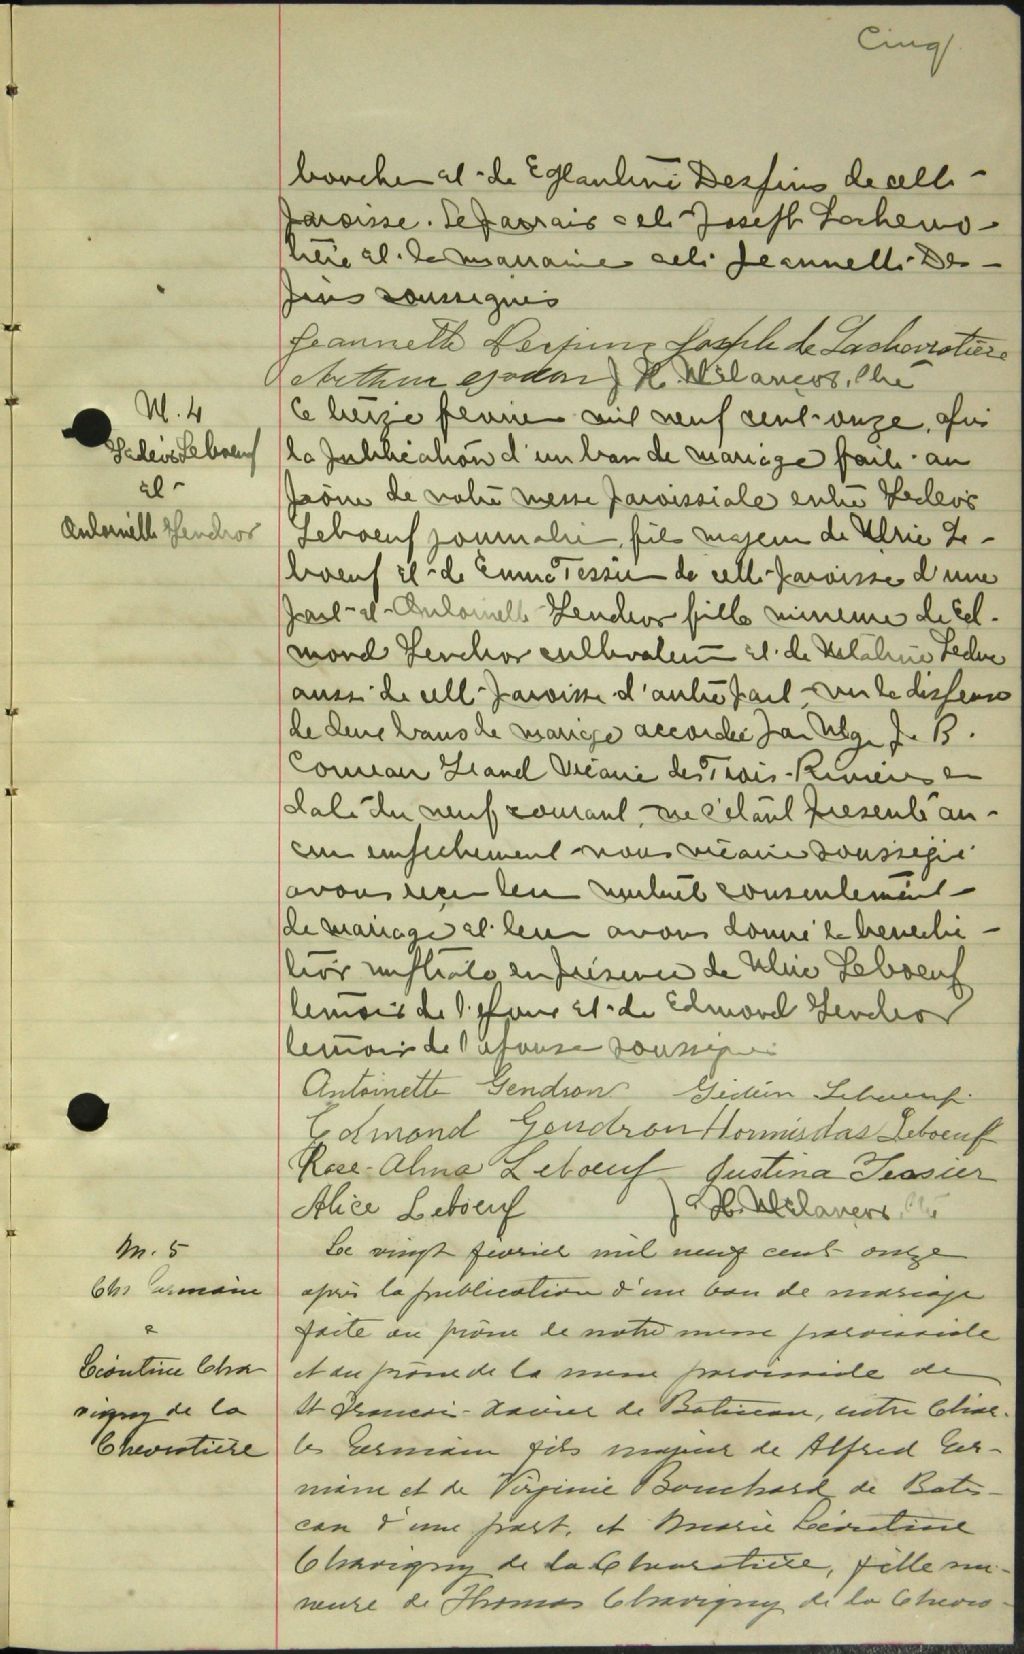 Cinq
boucher et de Eglantine Desfins de cette
paroisse. Le parrain a été Joseph Lachevro-
tière et la marraine a été Jeannette Des-
fins soussignés
Jeannette Despins Joseph de Lachevrotière
Arthur J H. Melançon, Ptre
M. 4
Gédéon Leboeuf
et
Antoinette Gendron
Ce treize fevrier mil neuf cent onze, après
la publication d'un ban de mariage faite au
prône de notre messe paroissiale entre Gédéon
Leboeuf journalier, fils majeur de Ulric Le-
boeuf et de Emma Tessier de cette paroisse d'une
part et Antoinette Gendron fille mineure de Ed-
mond Gendron cultivateur et de Leduc
aussi de cette paroisse d'autre part, vu la dispense
de deux bans de mariage accordée par Mgr J. B.
Comeau Grand Vicaire des Trois-Rivières en
date du neuf courant, ne s'étant présenté au-
cun empêchement nous vicaire soussigné
avons reçu leur mutuel consentement
de mariage et leur avons donné la bénédic-
tion nuptiale en présence de Ulric Leboeuf
témoin de l'époux et de Edmond Gendron
témoin de l'épouse soussignés
Antoinette Gendron Gédéon Leboeuf
Edmond Gendron Hormisdas Leboeuf
Rose-Alma Leboeuf Justina Tessier
Alice Leboeuf J H. Melançon, Ptre
M. 5
Chs Germain
&
Léontine Cha
vigny de la
Chevrotière
Le vingt février mil neuf cent onze
après la publication d'un ban de mariage
faite au prône de notre messe paroissiale
et au prône de la messe paroissiale de
St François-Xavier de Batiscan, entre Char-
les Germain fils majeur de Alfred Ger-
main et de Virginie Bouchard de Batis-
can d'une part, et Marie Léontine
Chavigny de la Chevrotière, fille mi-
neure de Thomas Chavigny de la Chevro-